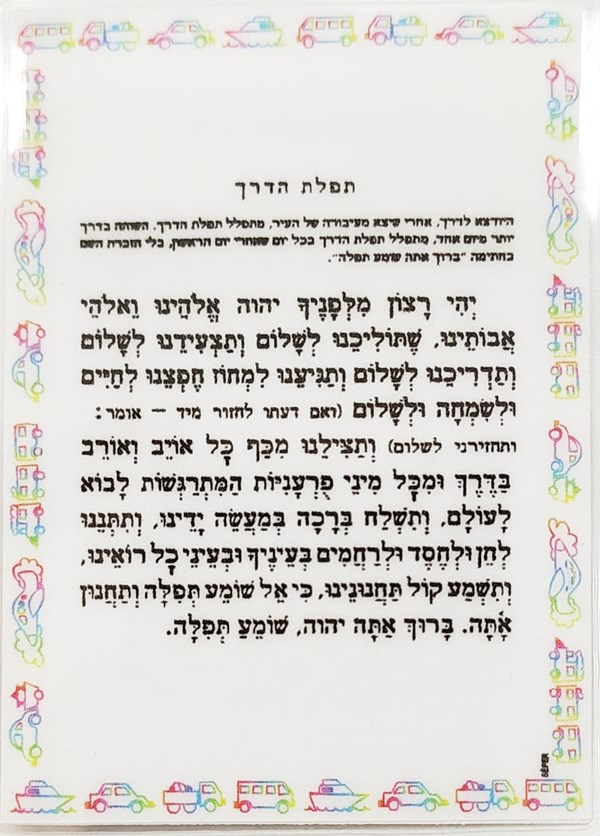 תפלת הדרך
היוצא לדרך, אחרי שיצא מעיבורה של העיר, מתפלל תפלת הדרך. השוהה בדרך
יותר מיום אחד, מתפלל תפלת הדרך בכל יום שאחרי יום הראשון, בלי הזכרת השם
בחתימה "ברוך אתה שומע תפלה".
יְהִי רָצוֹן מִלְּפָנֶיךָ יהוה אֱלֹהֵינוּ וֵאלֹהֵי
אֲבוֹתֵינוּ, שֶׁתּוֹלִיכֵנוּ לְשָׁלוֹם וְתַצְעִידֵנוּ לְשָׁלוֹם
וְתַדְרִיכֵנוּ לְשָׁלוֹם וְתַגִּיעֵנוּ לִמְחוֹז חֶפְצֵנוּ לְחַיִּים
וּלְשִׂמְחָה וּלְשָׁלוֹם (ואם דעתו לחזור מיד — אומר:
ותחזירני לשלום) וְתַצִּילֵנוּ מִכַּף כָּל אוֹיֵב וְאוֹרֵב
בַּדֶּרֶךְ וּמִכָּל מִינֵי פֻּרְעָנִיּוֹת הַמִּתְרַגְּשׁוֹת לָבוֹא
לָעוֹלָם, וְתִשְׁלַח בְּרָכָה בְּמַעֲשֵׂה יָדֵינוּ, וְתִתְּנֵנוּ
לְחֵן וּלְחֶסֶד וּלְרַחֲמִים בְּעֵינֶיךָ וּבְעֵינֵי כָל רוֹאֵינוּ,
וְתִשְׁמַע קוֹל תַּחֲנוּנֵינוּ, כִּי אֵל שׁוֹמֵעַ תְּפִלָּה וְתַחֲנוּן
אָתָּה. בָּרוּךְ אַתָּה יהוה, שׁוֹמֵעַ תְּפִלָּה.
SEFER